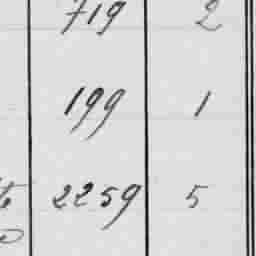 719 2
199 1
2259 5